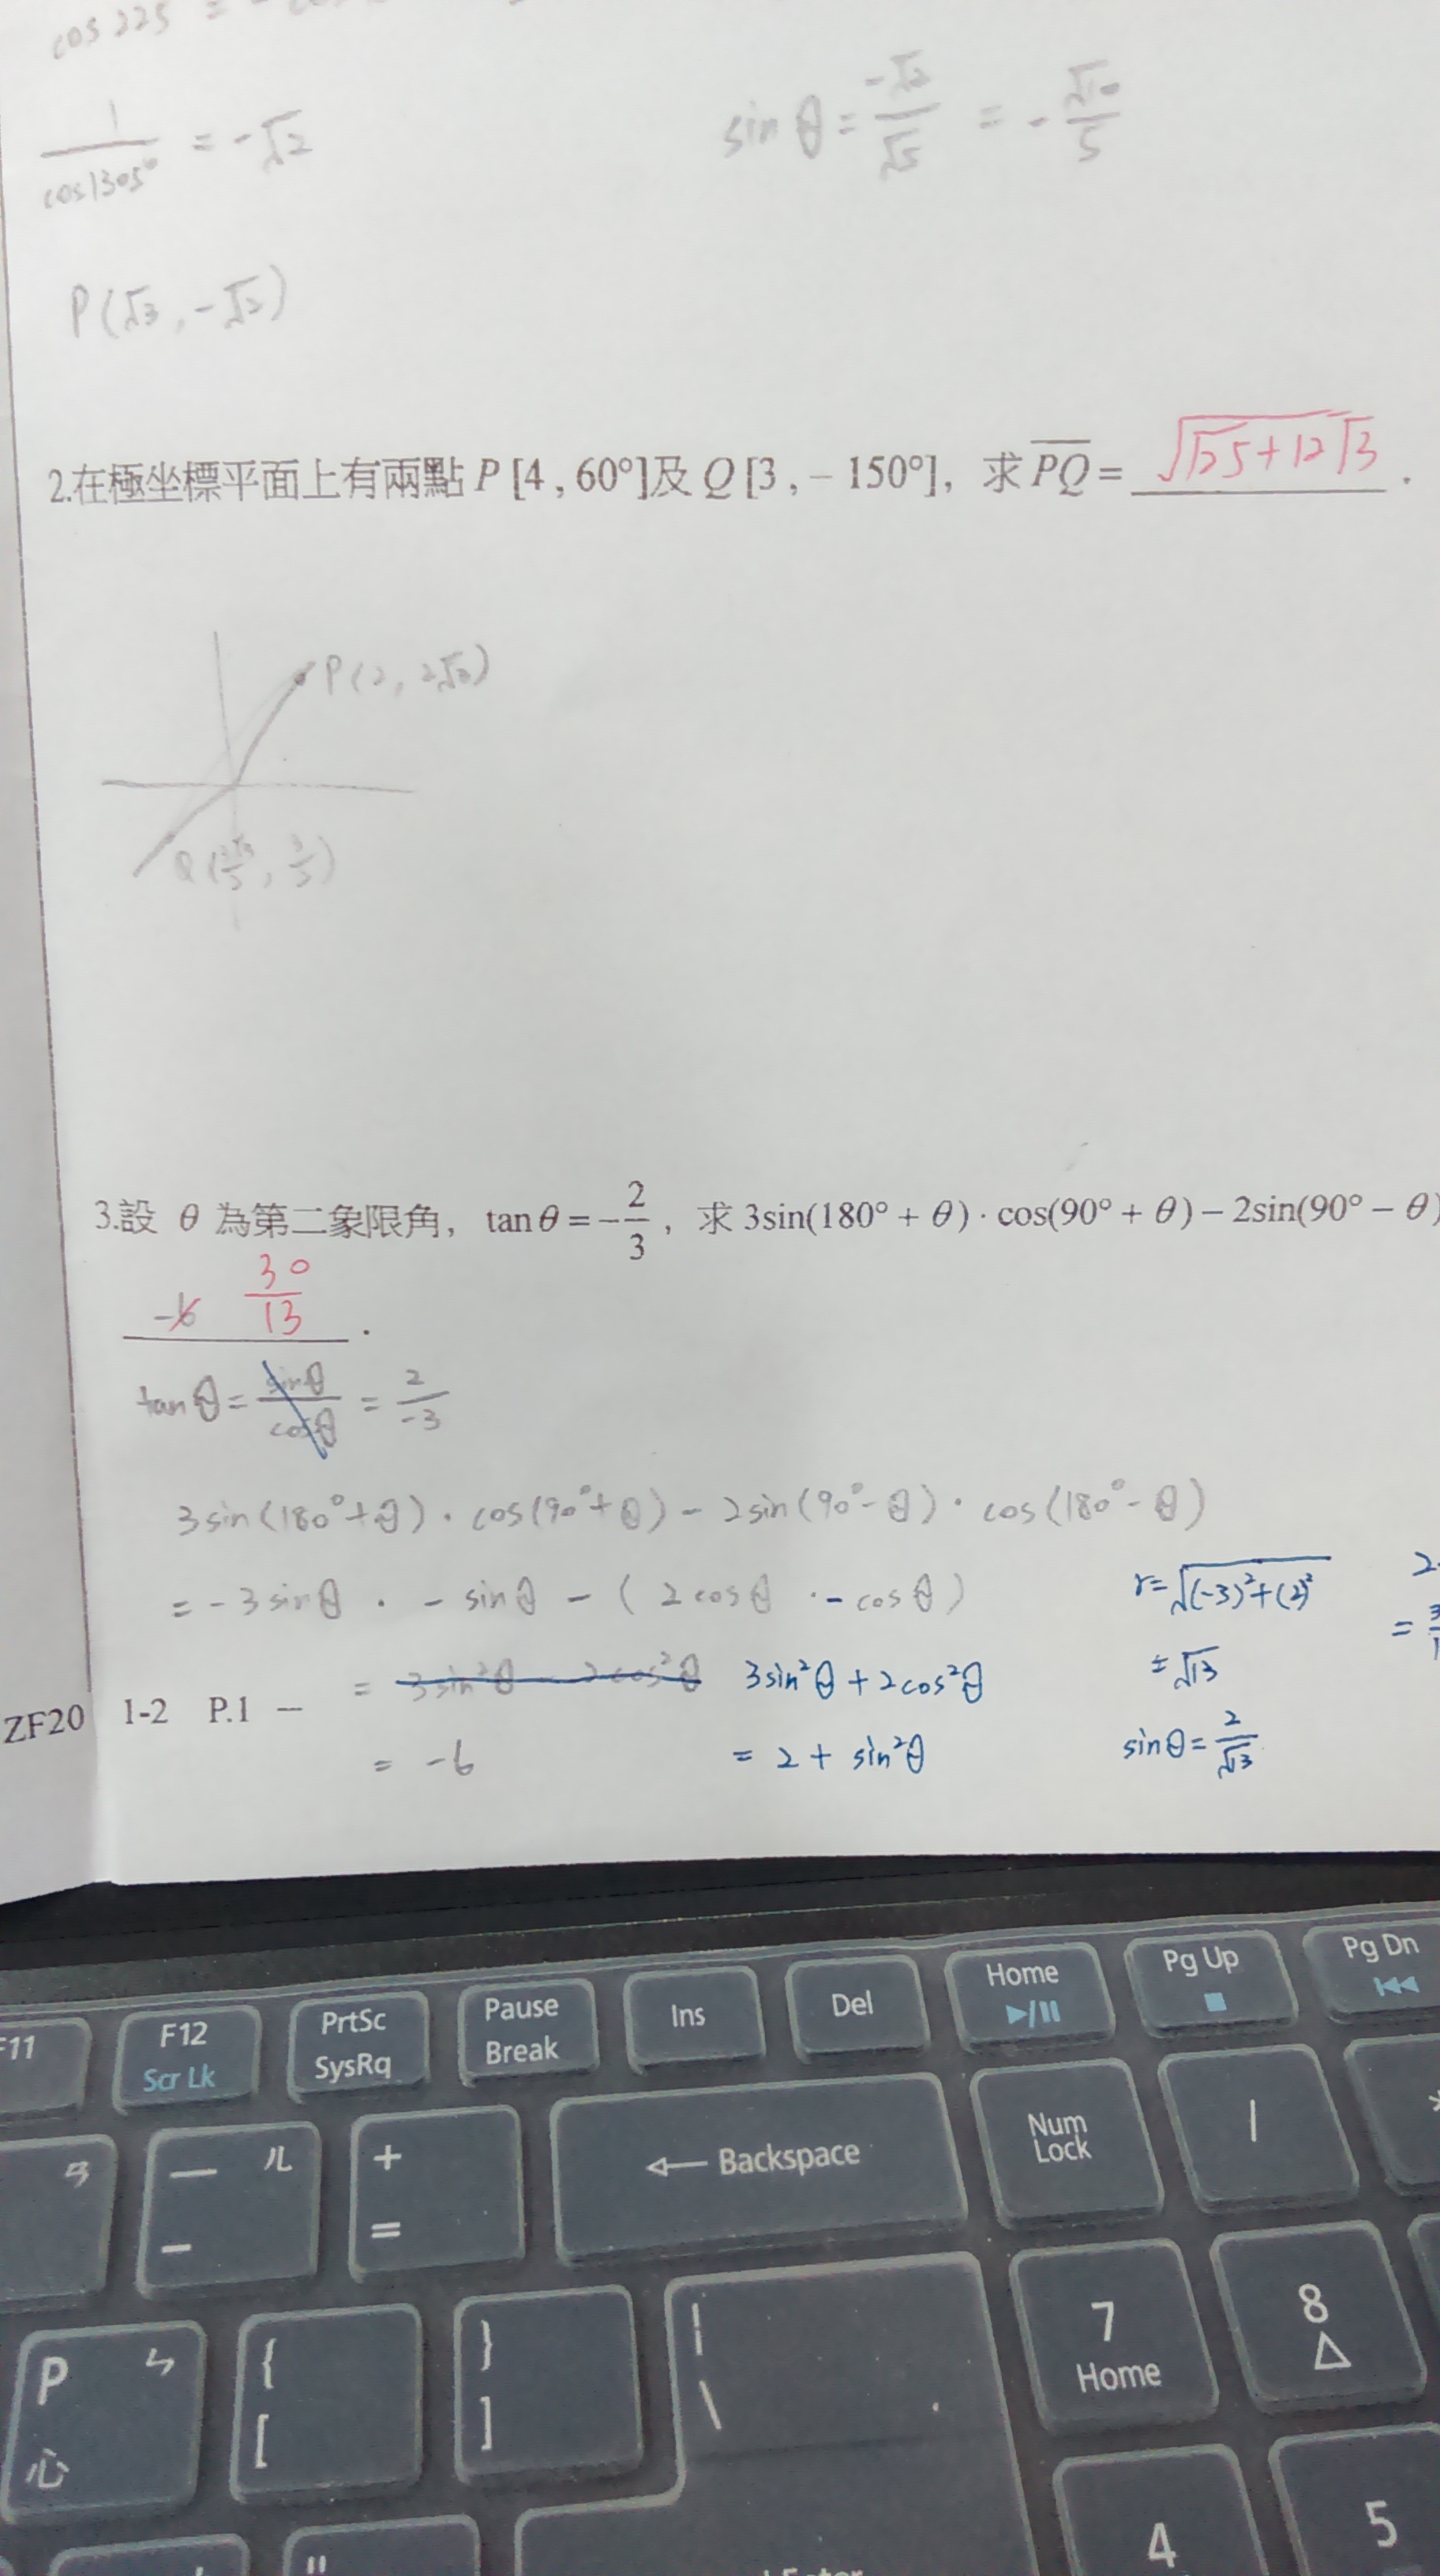 cos 225 = -
1/cos1305° = -√2
sin θ = -√2/√5 = - √10/5
P(√3, -√2)
2.在極坐標平面上有兩點 P [4 , 60°]及 Q [3 , – 150°]，求 PQ = √25+12√3 .
P(2, 2√3)
3.設 θ 為第二象限角，tan θ = – 2/3，求 3sin(180° + θ) · cos(90° + θ) – 2sin(90° – θ)
-6 30/13 .
tan θ = sinθ/cosθ = 2/-3
3sin(180°+θ) · cos(90°+θ) - 2sin(90°-θ) · cos(180°-θ)
= -3sinθ · -sinθ - ( 2cosθ · -cosθ )
r=√(-3)²+(2)²
= 3sin²θ - 2cos²θ 3sin²θ + 2cos²θ
= √13
ZF20 1-2 P.1 –
= -6
= 2 + sin²θ
sinθ = 2/√13
F11
F12
Scr Lk
PrtSc
SysRq
Pause
Break
Ins
Del
Home
Pg Up
Pg Dn
ㄢ
— ㄦ
-
+
=
Backspace
Num
Lock
/
P ㄣ
心
{
[
}
]
|
\
7
Home
8
4
5
"